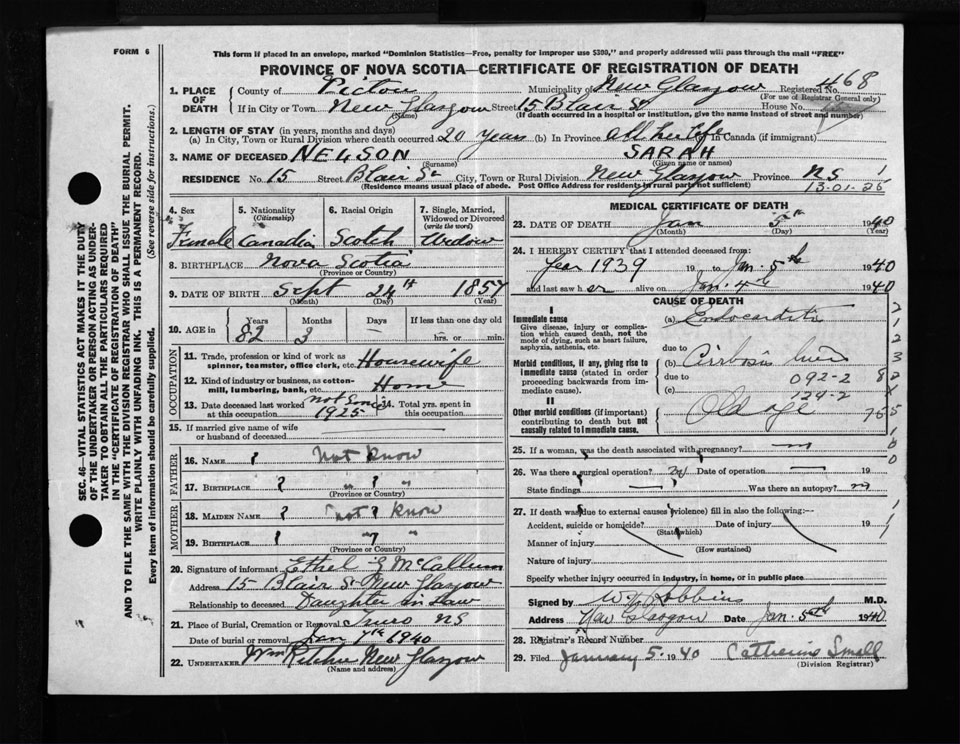 FORM 6
This form if placed in an envelope, marked "Dominion Statistics—Free, penalty for improper use $300," and properly addressed will pass through the mail "FREE"
PROVINCE OF NOVA SCOTIA—CERTIFICATE OF REGISTRATION OF DEATH
1. PLACE OF DEATH
County of Pictou Municipality of New Glasgow Registered No. 468
(For use of Registrar General only)
If in City or Town New Glasgow Street 15 Blair St House No.
(Name) (If death occurred in a hospital or institution, give the name instead of street and number)
2. LENGTH OF STAY (in years, months and days)
(a) In City, Town or Rural Division where death occurred 20 years (b) In Province all her life In Canada (if immigrant)
3. NAME OF DECEASED NELSON SARAH
(Surname) (Given name or names)
RESIDENCE No. 15 Street Blair St City, Town or Rural Division New Glasgow Province NS
(Residence means usual place of abode. Post Office Address for residents in rural parts not sufficient) 13-01-26
4. Sex Female
5. Nationality (Citizenship) Canadian
6. Racial Origin Scotch
7. Single, Married, Widowed or Divorced (write the word) Widow
8. BIRTHPLACE Nova Scotia
(Province or Country)
9. DATE OF BIRTH Sept 24th 1857
(Month) (Day) (Year)
10. AGE in Years 82 Months 3 Days — If less than one day old hrs. or min.
OCCUPATION
11. Trade, profession or kind of work as spinner, teamster, office clerk, etc. Housewife
12. Kind of industry or business, as cotton-mill, lumbering, bank, etc. Home
13. Date deceased last worked at this occupation not since 1925
14. Total yrs. spent in this occupation
15. If married give name of wife or husband of deceased
FATHER
16. NAME ? Not know
17. BIRTHPLACE ? " ? "
(Province or Country)
MOTHER
18. MAIDEN NAME ? "not ? know
19. BIRTHPLACE ? "?
(Province or Country)
20. Signature of informant Ethel G McCallum
Address 15 Blair St New Glasgow
Relationship to deceased Daughter in Law
21. Place of Burial, Cremation or Removal Truro NS
Date of burial or removal Jan 7th 1940
22. UNDERTAKER Wm Ritchie New Glasgow
(Name and address)
MEDICAL CERTIFICATE OF DEATH
23. DATE OF DEATH Jan 5th 1940
(Month) (Day) (Year)
24. I HEREBY CERTIFY that I attended deceased from:
Year 1939 19 to Jan. 5th 1940
and last saw her alive on Jan. 4th 1940
CAUSE OF DEATH
I
Immediate cause (a) Endocarditis
Give disease, injury or complication which caused death, not the mode of dying, such as heart failure, asphyxia, asthenia, etc.
due to
Morbid conditions, if any, giving rise to immediate cause (stated in order proceeding backwards from immediate cause). (b) Cirrhosis liver
due to 092-2
(c) 124-2
II
Other morbid conditions (if important) contributing to death but not causally related to immediate cause. Old age
25. If a woman, was the death associated with pregnancy? no
26. Was there a surgical operation? no Date of operation — 19
State findings — Was there an autopsy? no
27. If death was due to external causes (violence) fill in also the following:—
Accident, suicide or homicide? Date of injury 19
(State which)
Manner of injury
(How sustained)
Nature of injury
Specify whether injury occurred in industry, in home, or in public place
Signed by W Robbins M.D.
Address New Glasgow Date Jan. 5th 1940
28. Registrar's Record Number
29. Filed January 5. 1940 Catherine Small
(Division Registrar)
SEC. 46—VITAL STATISTICS ACT MAKES IT THE DUTY
OF THE UNDERTAKER OR PERSON ACTING AS UNDER-
TAKER TO OBTAIN ALL THE PARTICULARS REQUIRED
IN THE "CERTIFICATE OF REGISTRATION OF DEATH"
AND TO FILE THE SAME WITH THE DIVISION REGISTRAR WHO SHALL ISSUE THE BURIAL PERMIT.
WRITE PLAINLY WITH UNFADING INK. THIS IS A PERMANENT RECORD.
Every item of information should be carefully supplied. (See reverse side for instructions.)